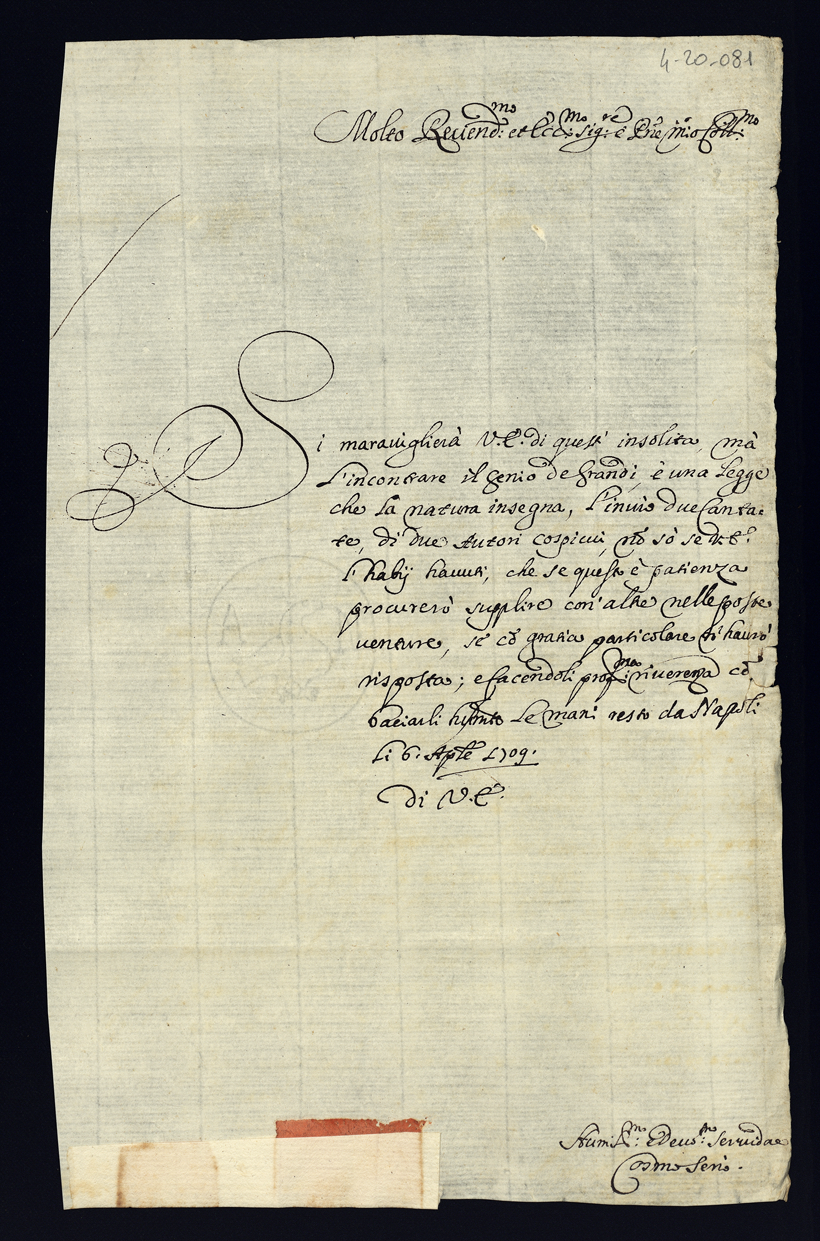 4-20-081
Molto Reuend:mo et Ecc:mo Sig:re e Pne mio Coll:mo
Si marauiglierà V.E. di quest' insolita, mà
l'incontrare il Genio de Grandi, è una Legge
che la natura insegna, l'inuio due Canta-
te, di due Autori cospicui, nõ sò se V.E.
l'habij hauuti, che se questo è patienza
procurerò supplire con' altre nelle poste
venture, se cõ gratia particolare hauro'
risposta; e facendoli prof:ma riuerenza cõ
baciarli humte le mani resto da Napoli
li 6. Aple 1709.
di V.E.
Humil:mo e Deuo:mo Seruidae
Cosmo Serio.